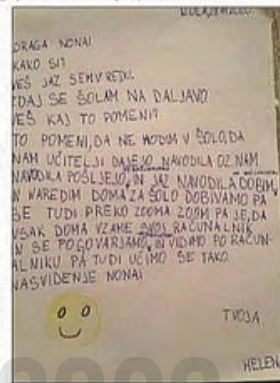 DRAGA NONA!
KAKO SI?
VEŠ JAZ SEM V REDU.
ZDAJ SE ŠOLAM NA DALJAVO
VEŠ KAJ TO POMENI?
TO POMENI, DA NE HODIM V ŠOLO, DA
NAM UČITELJI DAJEJO NAVODILA OZ. NAM
NAVODILA POŠLJEJO, IN JAZ NAVODILA DOBIM,
IN NAREDIM DOMA ZA ŠOLO DOBIVAMO PA
SE TUDI PREKO ZOOMA ZOOM PA JE, DA
VSAK DOMA VZAME SVOJ RAČUNALNIK
IN SE POGOVARJAMO, IN VIDIMO PO RAČUN-
ALNIKU PA TUDI UČIMO SE TAKO.
NASVIDENJE NONA!
TVOJA
HELEN